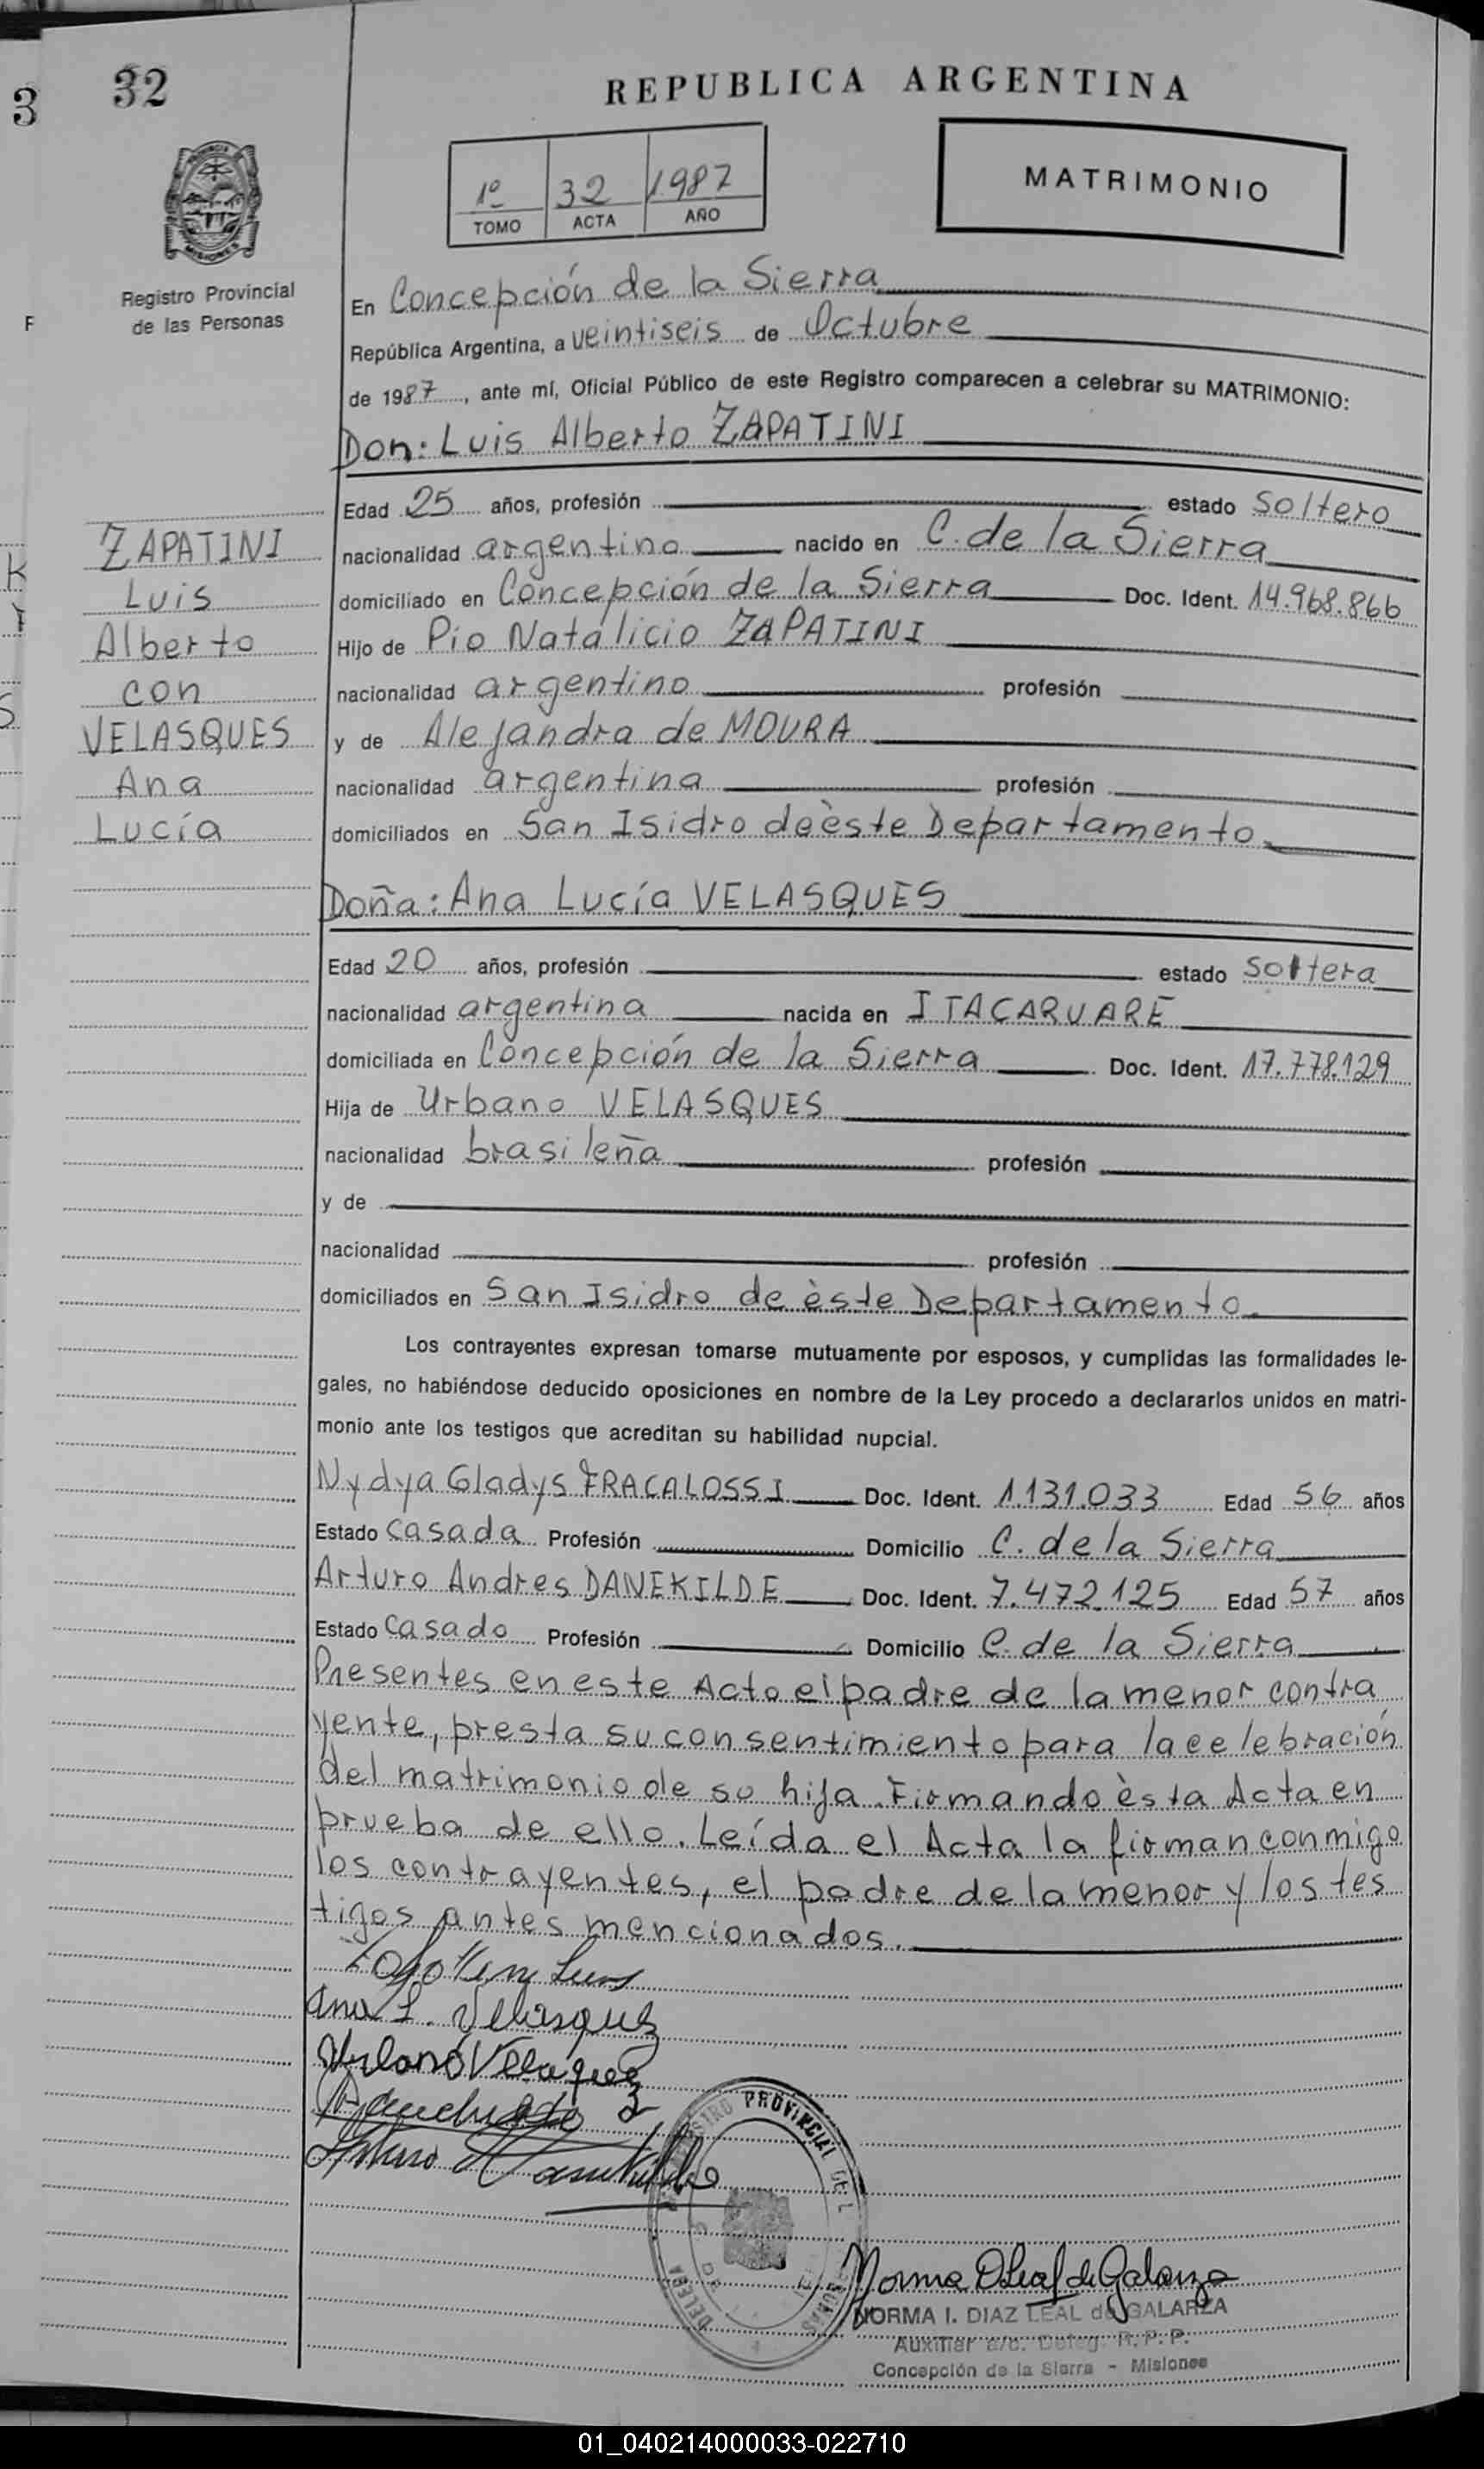 3
32
REPUBLICA ARGENTINA
1º 32 1987
TOMO ACTA AÑO
MATRIMONIO
PROVINCIA
MISIONES
Registro Provincial
de las Personas
F
En Concepción de la Sierra
República Argentina, a veintiseis de Octubre
de 1987, ante mí, Oficial Público de este Registro comparecen a celebrar su MATRIMONIO:
Don: Luis Alberto ZAPATINI
Edad 25 años, profesión estado Soltero
nacionalidad argentina nacido en C. de la Sierra
domiciliado en Concepción de la Sierra Doc. Ident. 14.968.866
Hijo de Pio Natalicio ZAPATINI
nacionalidad argentino profesión
y de Alejandra de MOURA
nacionalidad argentina profesión
domiciliados en San Isidro de èste Departamento
ZAPATINI
Luis
Alberto
con
VELASQUES
Ana
Lucía
Doña: Ana Lucía VELASQUES
Edad 20 años, profesión estado Soltera
nacionalidad argentina nacida en ITACARUARE
domiciliada en Concepción de la Sierra Doc. Ident. 17.778.129
Hija de Urbano VELASQUES
nacionalidad brasileña profesión
y de
nacionalidad profesión
domiciliados en San Isidro de èste Departamento.
Los contrayentes expresan tomarse mutuamente por esposos, y cumplidas las formalidades le-
gales, no habiéndose deducido oposiciones en nombre de la Ley procedo a declararlos unidos en matri-
monio ante los testigos que acreditan su habilidad nupcial.
Nydya Gladys FRACALOSSI Doc. Ident. 1.131.033 Edad 56 años
Estado casada Profesión Domicilio C. de la Sierra
Arturo Andres DANEKILDE Doc. Ident. 7.472.125 Edad 57 años
Estado casado Profesión Domicilio C. de la Sierra
Presentes en este Acto el padre de la menor contra
yente, presta su consentimiento para la celebración
del matrimonio de su hija. Firmando èsta Acta en
prueba de ello. Leída el Acta la firman conmigo
los contrayentes, el padre de la menor y los tes
tigos antes mencionados.
Zapattini Luis
Ana L. Velasquez
Urbano Velasquez
Arturo
REGISTRO PROVINCIAL DE L
DELEGA
Norma D Leal de Galarza
NORMA I. DIAZ LEAL de GALARZA
Auxiliar a/c. Deleg. R. P. P.
Concepción de la Sierra - Misiones
01_040214000033-022710